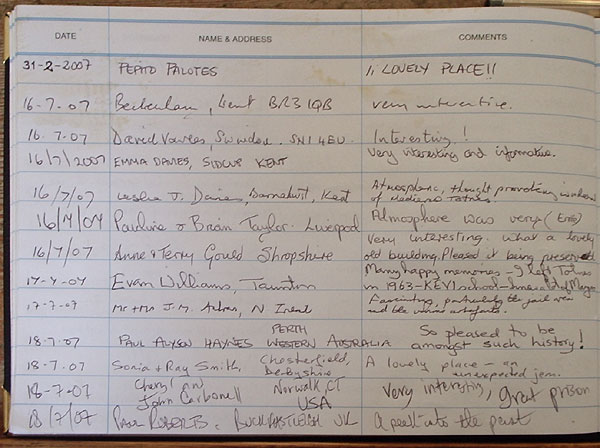 DATE NAME & ADDRESS COMMENTS
31-2-2007 PEPITO PALOTES ¡¡ LOVELY PLACE!!
16-7-07 Beckenham, Kent BR3 1QB very interactive.
16.7.07 David Swindon. SN1 4EU. Interesting!
16/7/2007 EMMA DAVIES, SIDCUP KENT Very interesting and informative.
Atmospheric, thought provoking
16/7/07 Leslie J. Davies, Kent of
16/7/07 Pauline & Brian Taylor Liverpool Atmosphere was very (Eerie)
Very interesting. What a lovely
16/7/07 Anne & Terry Gould Shropshire old building. Pleased it being preserved
Many happy memories - I left Totnes
17-7-07 Evan Williams, Taunton in 1963 - KEVI School -
17-7-07 Mr & Mrs J.M. N Fascinating, particularly the jail area
and the various artefacts.
PERTH So pleased to be
18.7.07 PAUL ALYSON HAYNES WESTERN AUSTRALIA amongst such history!
18.7.07 Sonia & Ray Smith, Chesterfield, A lovely place - an
Derbyshire unexpected gem.
18-7-07 Cheryl and Norwalk, CT Very interesting, great prison
John Carbonell USA
18/7/07 PAUL ROBERTS. BUCKFASTLEIGH UK A peek into the past